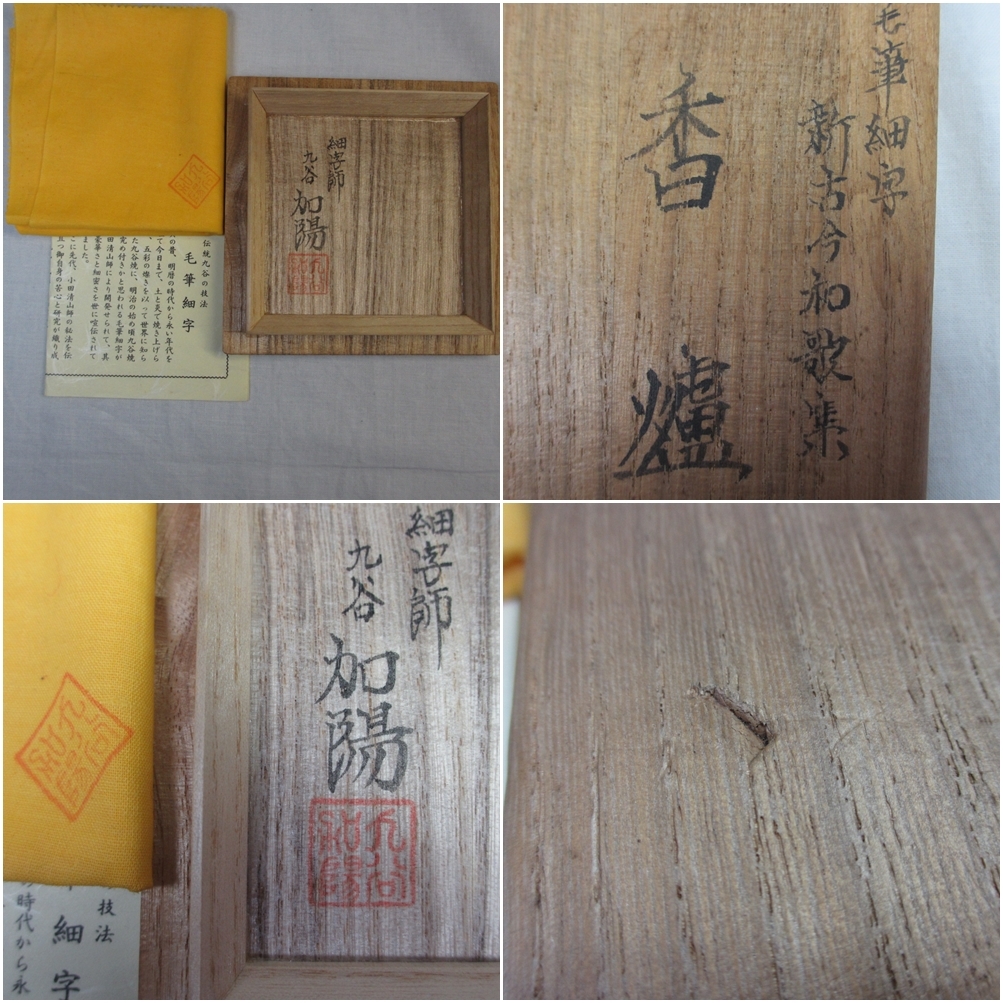 細字師
九谷
加陽
伝統九谷の技法
毛筆細字
の昔、明暦の時代から永い年代を
て今日まで、土と炎で焼き上げら
五彩の燦きを以って世界に知ら
た九谷焼に、明治の始め頃九谷焼
極め付きかと思われる毛筆細字が
田清山師により開発せられて、其
豪華さと細密さを世に喧伝されて
ました。
こに先代、小田清山師の秘法を伝
且つ御自身の苦心と研究が織り成
毛筆細字
新古今和歌集
香爐
細字師
九谷
加陽
九谷
加陽
技法
細字
時代から永